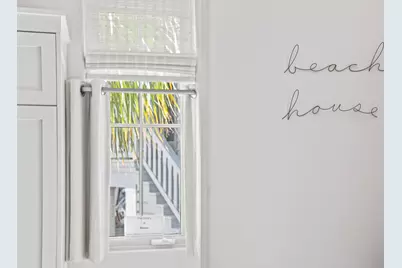 beach
house